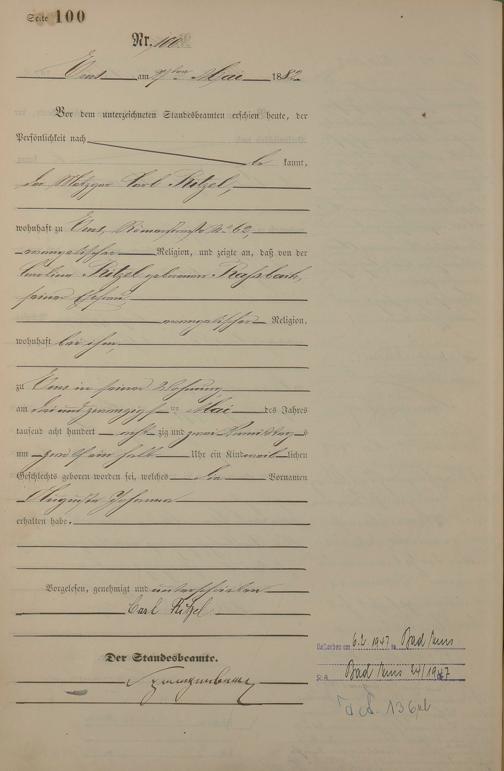 Seite 100
Nr. 100
Ems am Mai 1882
Vor dem unterzeichneten Standesbeamten erschien heute, der
Persönlichkeit nach
be kannt,
der Metzger Carl Kitzel,
wohnhaft zu Ems, Römerstraße No 62,
evangelischer Religion, und zeigte an, daß von der
Caroline Kitzel geborenen
seiner Ehefrau
evangelischer Religion,
wohnhaft bei ihm,
zu Ems in seiner Wohnung
am drei und zwanzigsten Mai des Jahres
tausend acht hundert acht zig und zwei
um zwölf ein halb Uhr ein Kind lichen
Geschlechts geboren worden sei, welches die Vornamen
Auguste Johanna
erhalten habe.
Vorgelesen, genehmigt und unterschrieben
Carl Kitzel
Der Standesbeamte.
Gestorben am 6.2.1947 in Bad Ems
St.A. Bad Ems 24/1947